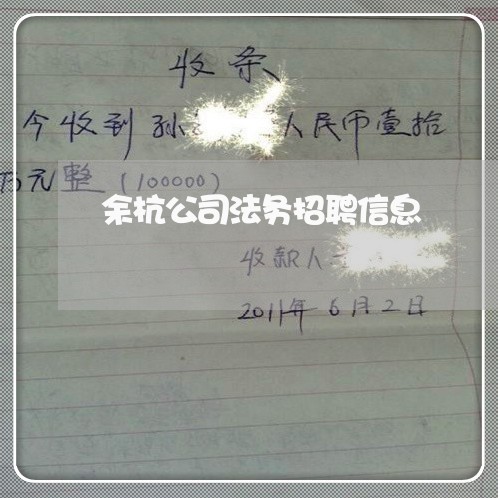 收条
今收到孙 人民币壹拾
万元整（100000）
余杭公司法务招聘信息
收款人
2011年6月2日